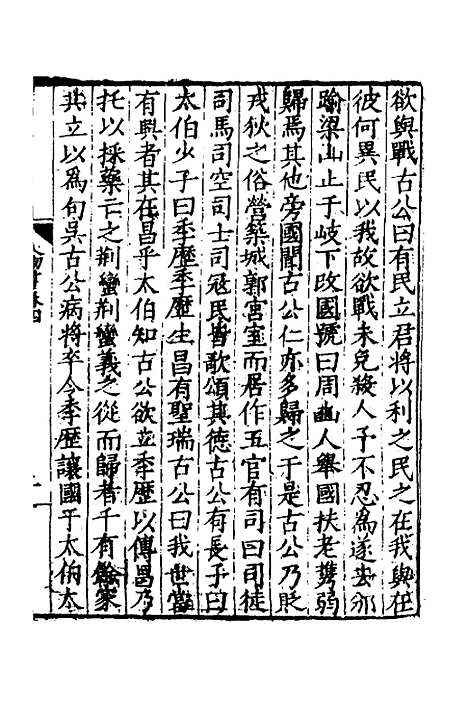 欲與戰古公曰有民立君將以利之民之在我與在
彼何異民以我故欲戰未免殺人子不忍為遂去邠
踰梁山止于岐下改國號曰周豳人舉國扶老攜弱
歸焉其他旁國聞古公仁亦多歸之于是古公乃貶
戎狄之俗營築城郭宮室而居作五官有司曰司徒
司馬司空司士司冦民皆歌頌其德古公有長子曰
太伯少子曰季歷季歷生昌有聖瑞古公曰我世當
有興者其在昌乎太伯知古公欲立季歷以傳昌乃
托以採藥亡之荆蠻荆蠻義之從而歸者千有餘家
共立以為句吳古公病將卒令季歷讓國于太伯太